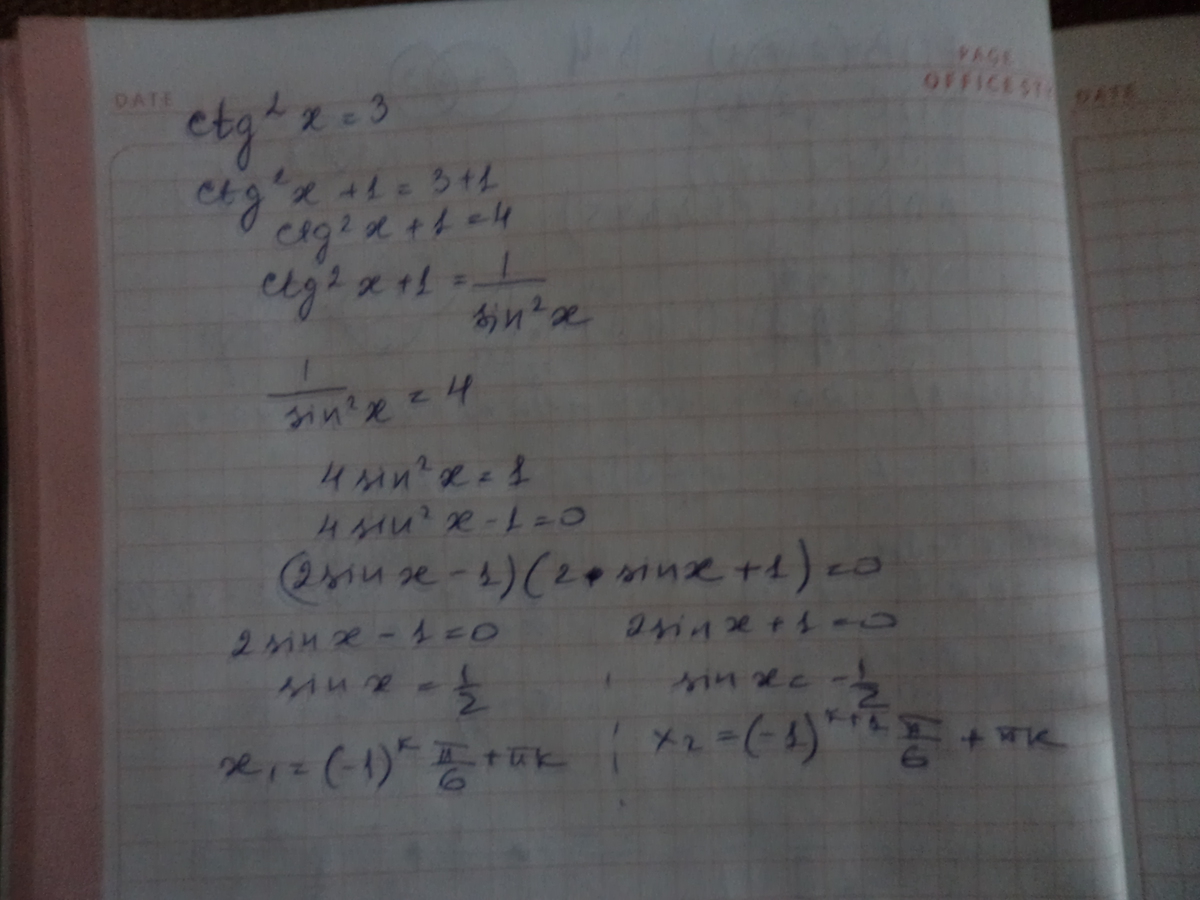 PAGE
DATE OFFICEST DATE
ctg² x = 3
ctg² x + 1 = 3+1
ctg² x + 1 = 4
ctg² x + 1 = 1/sin² x
1/sin² x = 4
4 sin² x = 1
4 sin² x - 1 = 0
(2 sin x - 1)(2 · sin x + 1) = 0
2 sin x - 1 = 0 2 sin x + 1 = 0
sin x = 1/2 ; sin x = - 1/2
x₁ = (-1)ᵏ π/6 + πk ; x₂ = (-1)ᵏ⁺¹ π/6 + πk